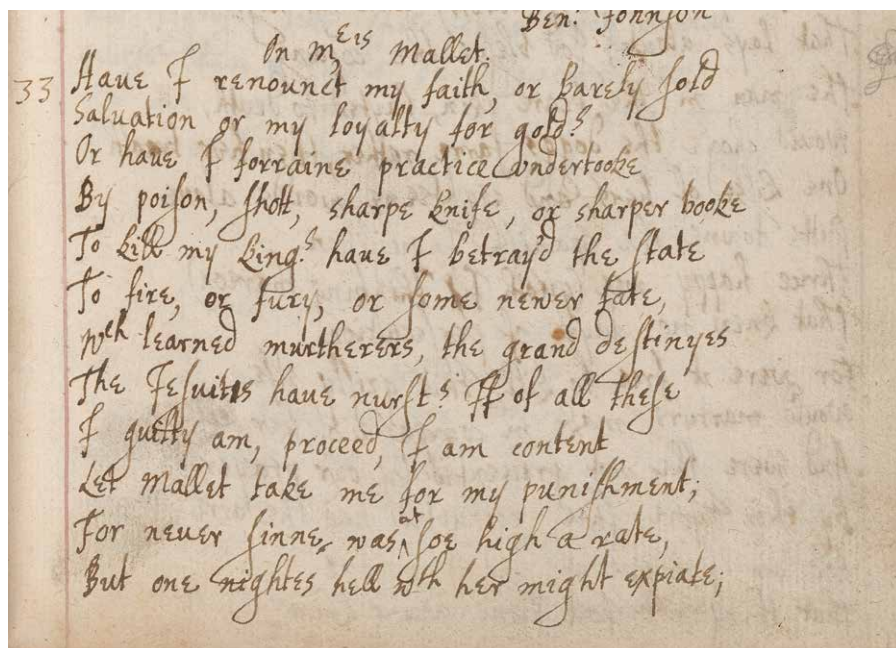 Ben: Johnson
On Mris Mallet.
33 Haue I renounct my faith, or barely sold
Saluation or my loyalty for gold?
Or haue I forraine practice undertooke
By poison, shott, sharpe knife, or sharper booke
To kill my king? haue I betray'd the state
To fire, or fury, or some newer fate,
wch learned murtherers, the grand destinyes
The Jesuites haue nurst? If of all these
I guilty am, proceed, I am content
Let Mallet take me for my punishment;
For neuer sinne was at soe high a rate,
But one nightes hell wth her might expiate;